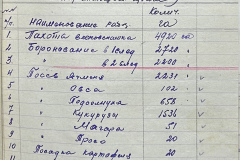 колич.
№ наименование работ га
1. Пахота 4920
2. Боронование в 1 след 2720
3. " в 2 след 2200
4 Посев Ячменя 2231
5 " Овса 102
6 " Подсолнуха 656
7 " Кукурузы 1536
8 " Могара 51
9 " Просо 20
10 Посадка картофеля 20
11